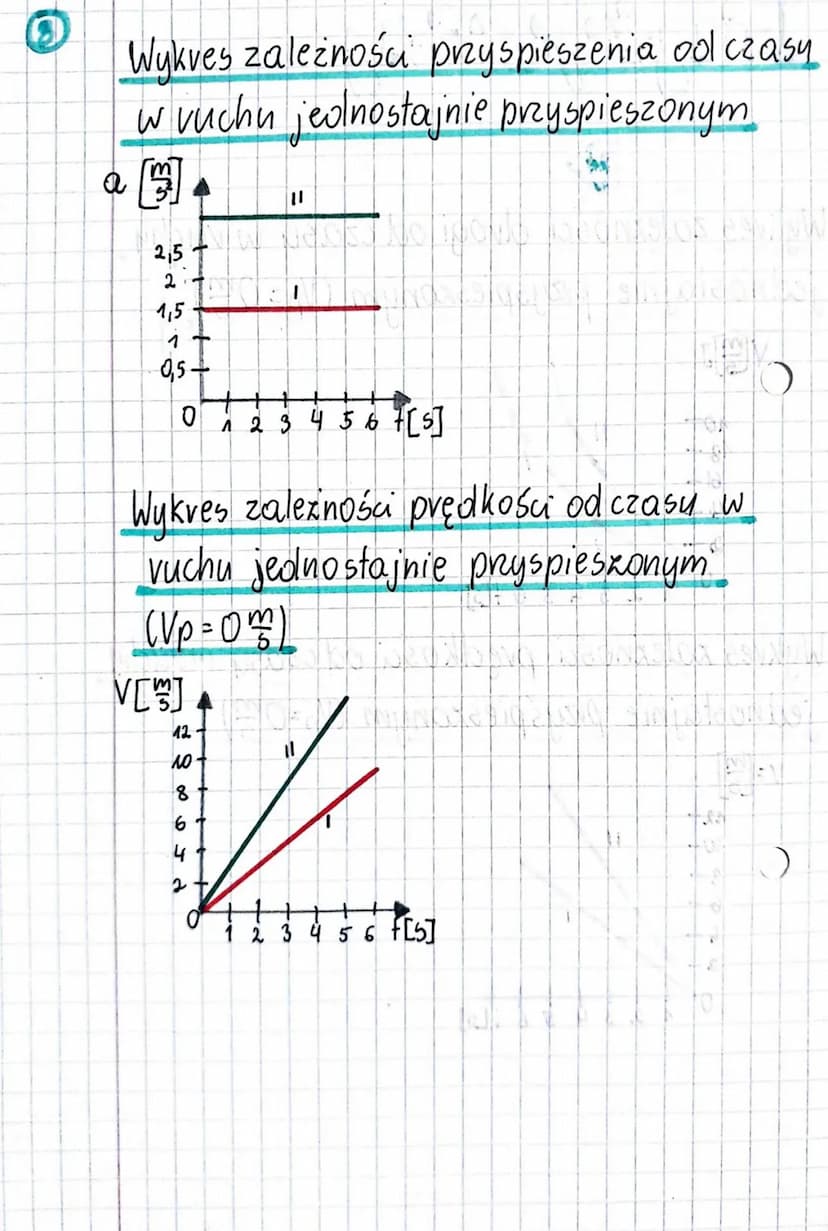 3
Wykres zależności przyspieszenia od czasu
w ruchu jednostajnie przyspieszonym
a [m/s²]
II
2,5
2
I
1,5
1
0,5
0 1 2 3 4 5 6 t[s]
Wykres zależności prędkości od czasu w
ruchu jednostajnie przyspieszonym
(Vp = 0 m/s)
V[m/s]
12
II
10
8
6
I
4
2
0
1 2 3 4 5 6 t[s]